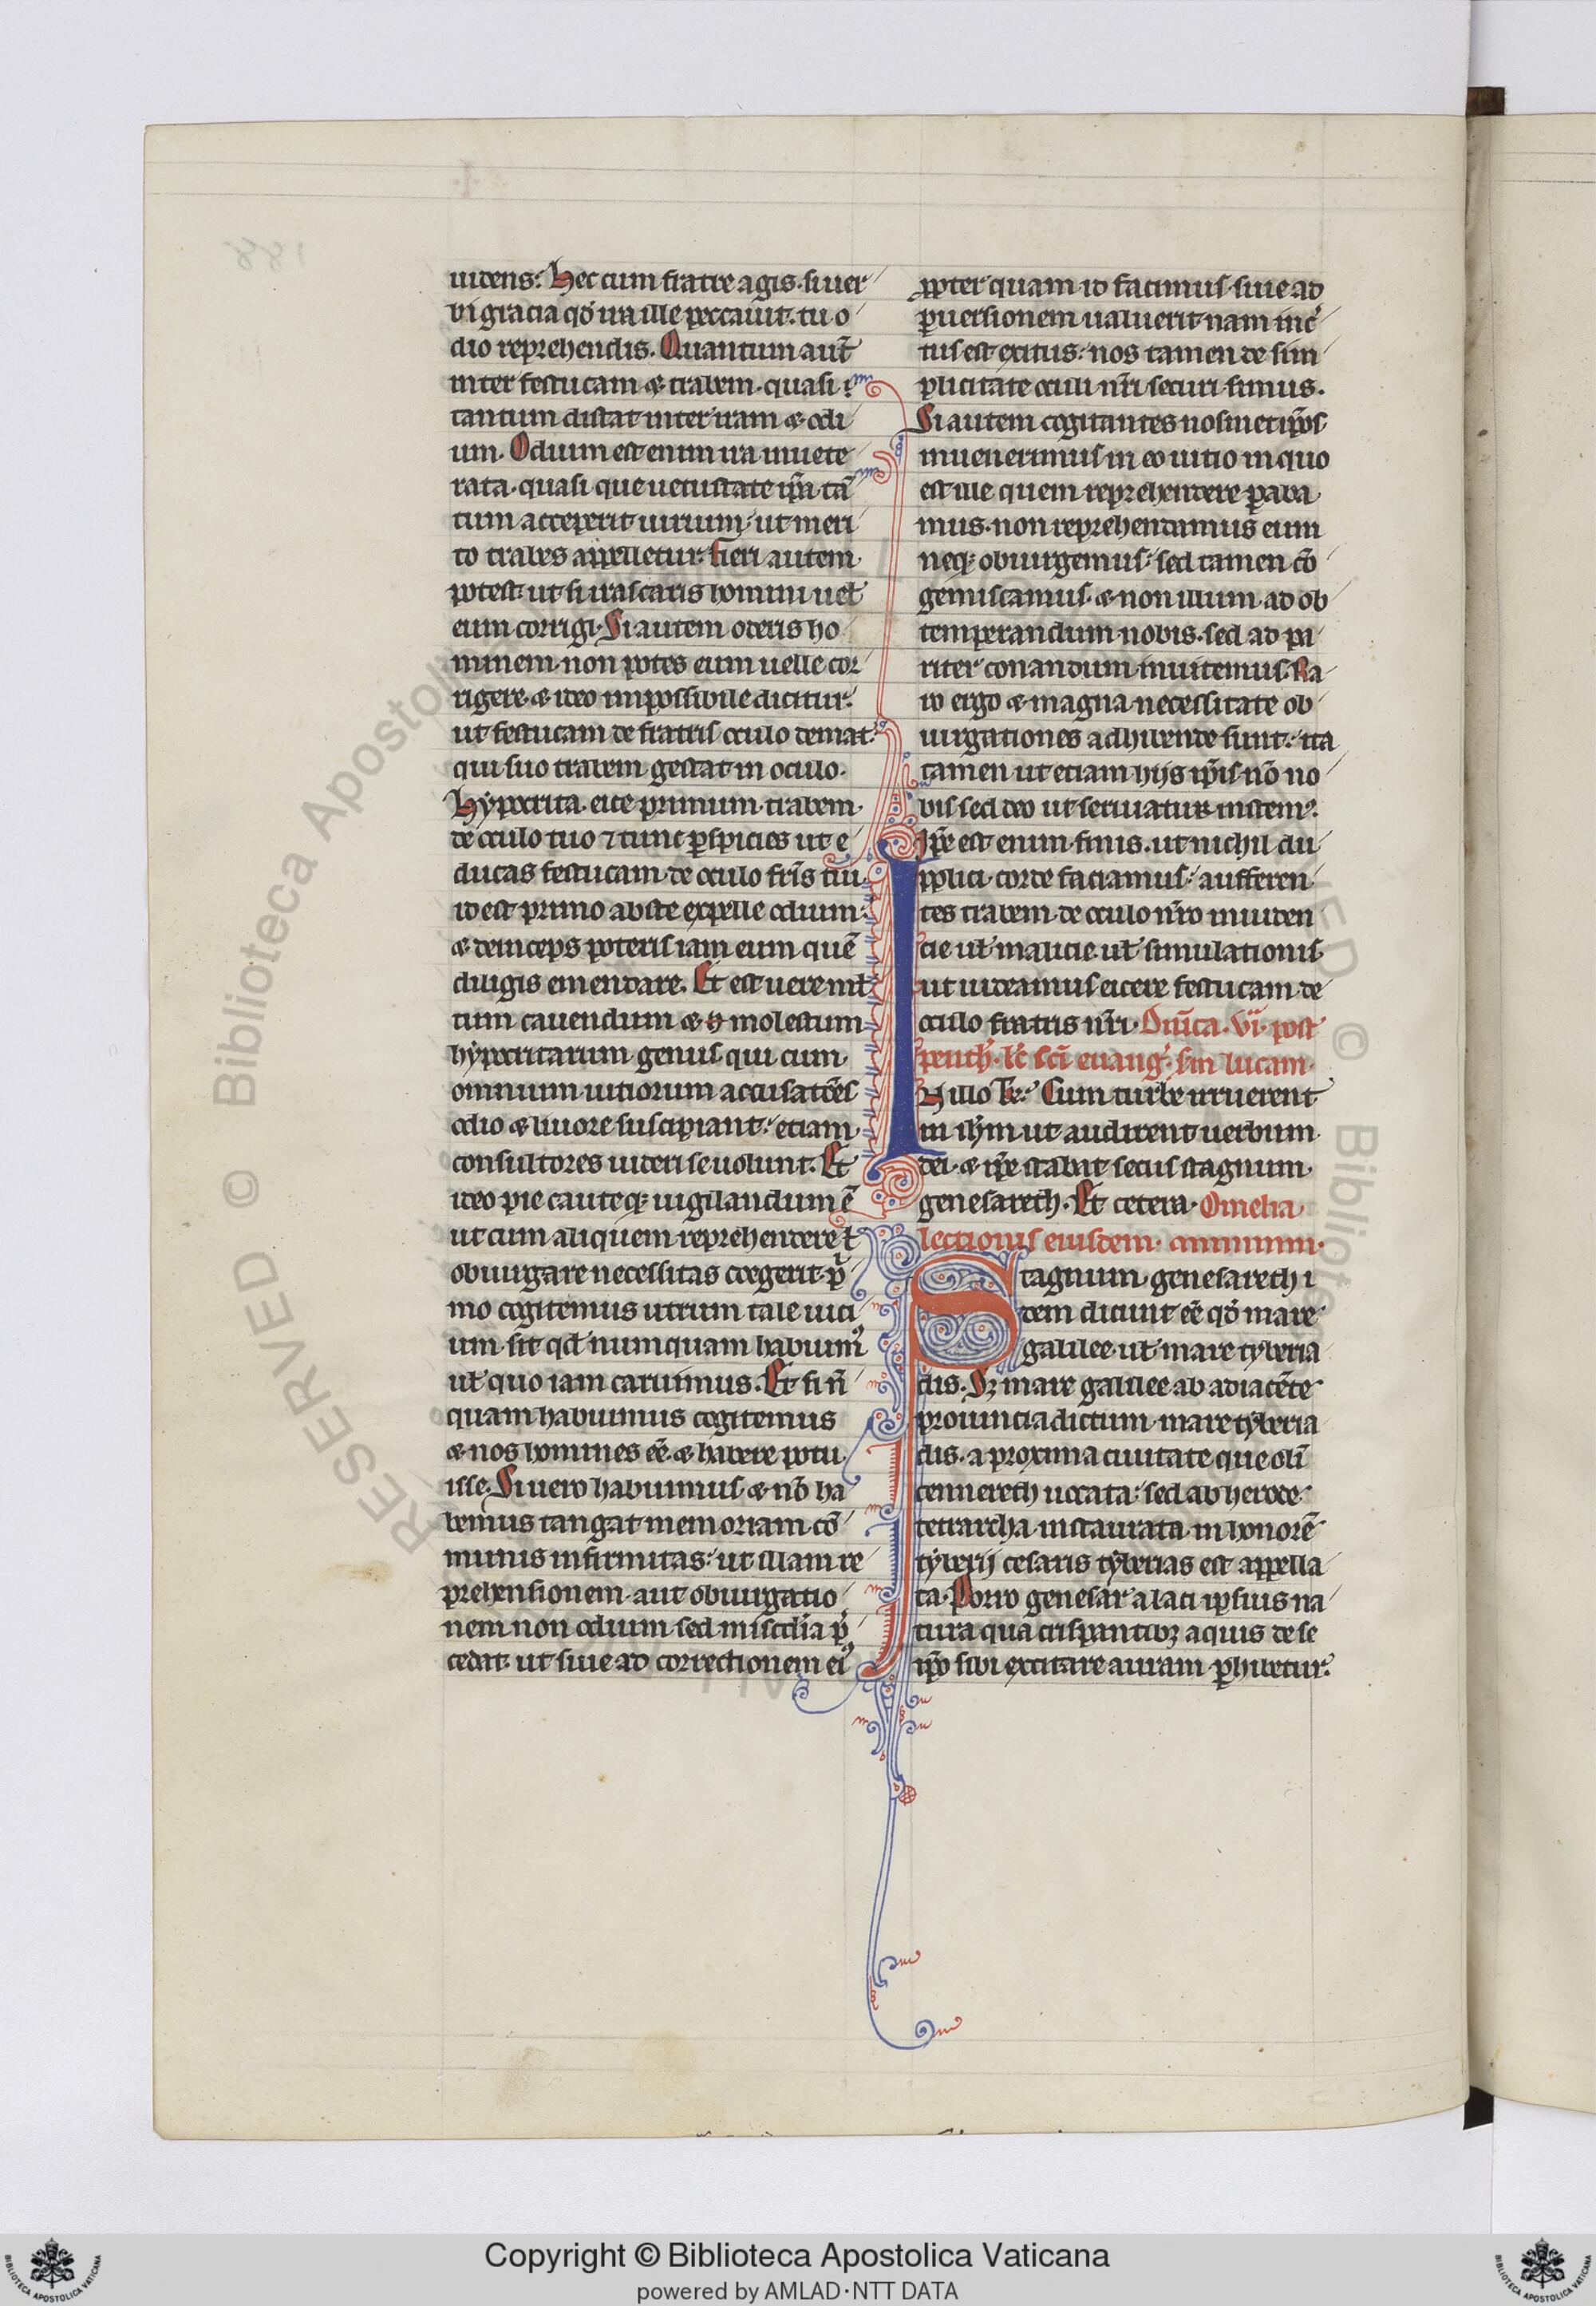 uidens. Hec cum fratre agis. si uer
bi gracia qď ira ille peccauit. tu o
dio reprehendis. Quantum aut̃
inter festucam & trabem. quasi
tantum distat inter iram & odi
um. Odium est enim ira inuete
rata. quasi que uetustate ip̃a tã
tum acceperit uirium. ut meri
to trabes appelletur. fieri autem
potest ut si irascaris homini uel̃
eum corrigi. Si autem oderis ho
minem. non potes eum uelle cor
rigere. & ideo impossibile dicitur.
ut festucam de fratris oculo demat
qui suo trabem gestat in oculo.
Hypocrita. eice primum trabem
de oculo tuo ⁊ tunc ꝑspicies ut e
ducas festucam de oculo fr̃is tui.
id est primo abste expelle odium.
& deinceps poteris iam eum quẽ
diligis emendare. Et est uere ml̃
tum cauendum & molestum
hypocritarum genus qui cum
omnium uitiorum accusatões
odio & liuore suscipiant. etiam
consultores uideri se uolunt. Et
ideo pie cauteqꝫ uigilandum ẽ
ut cum aliquem reprehendere ł
obiurgare necessitas coegerit. pͥ
mo cogitemus utrum tale uici
um sit qd̃ numquam habuimꝰ
ul̃ quo iam caruimus. Et si nũ
quam habuimus cogitemus
& nos homines eẽ. & habere potu
isse. Si uero habuimus. & nõ ha
bemus tangat memoriam cõ
munis infirmitas. ut illam re
prehensionem aut obiurgatio
nem non odium sed mis̃cdia p̃
cedat. ut siue ad correctionem eiꝰ
ꝓpter quam id facimus. siue ad
ꝑuersionem ualuerit. nam inc̃
tus est exitus. nos tamen de sim
plicitate oculi nr̃i securi simus.
Si autem cogitantes nosmetip̃os
inuenerimus in eo uitio in quo
est ille quem reprehendere ꝑaba
mus. non reprehendamus eum
neqꝫ obiurgemus. sed tamen cõ
gemiscamus. & non illum ad ob
temperandum nobis. sed ad pa
riter conandum inuitemus. Ra
ro ergo & magna necessitate ob
iurgationes adhibende sunt. ita
tamen ut etiam hijs ip̃is nõ no
bis sed deo ut seruiatur instem
Ip̃e est enim finis. ut nichil du
plici corde faciamus. aufferen
tes trabem de oculo nr̃o inuiden
cie ul̃ malicie. ul̃ simulationis
ut uideamus eicere festucam de
oculo fratris nr̃i. Dñica. vi. post
penth̃. lc̃ sc̃i euang̃. sm̃ lucam.
IN illo T̃. Cum turbe irruerent
in ihm̃ ut audirent uerbum
dei. & ip̃e stabat secus stagnum
genesareth. Et cetera. Omelia
lectionis eiusdem.
Stagnum genesareth i
dem dicunt eẽ qď mare
galilee. ul̃ mare tyberia
dis. Sꝫ mare galilee ab adiacẽte
prouincia dictum. mare tyberia
dis. a proxima ciuitate que olĩ
cennereth uocata. sed ab herode
tetrarcha instaurata in honorẽ
tyberij cesaris tyberias est appella
ta. Porro genesar a laci ipsius na
tura qua crispantibꝫ aquis de se
ip̃o sibi excitare auram ꝑhibetur.
Copyright © Biblioteca Apostolica Vaticana
powered by AMLAD·NTT DATA